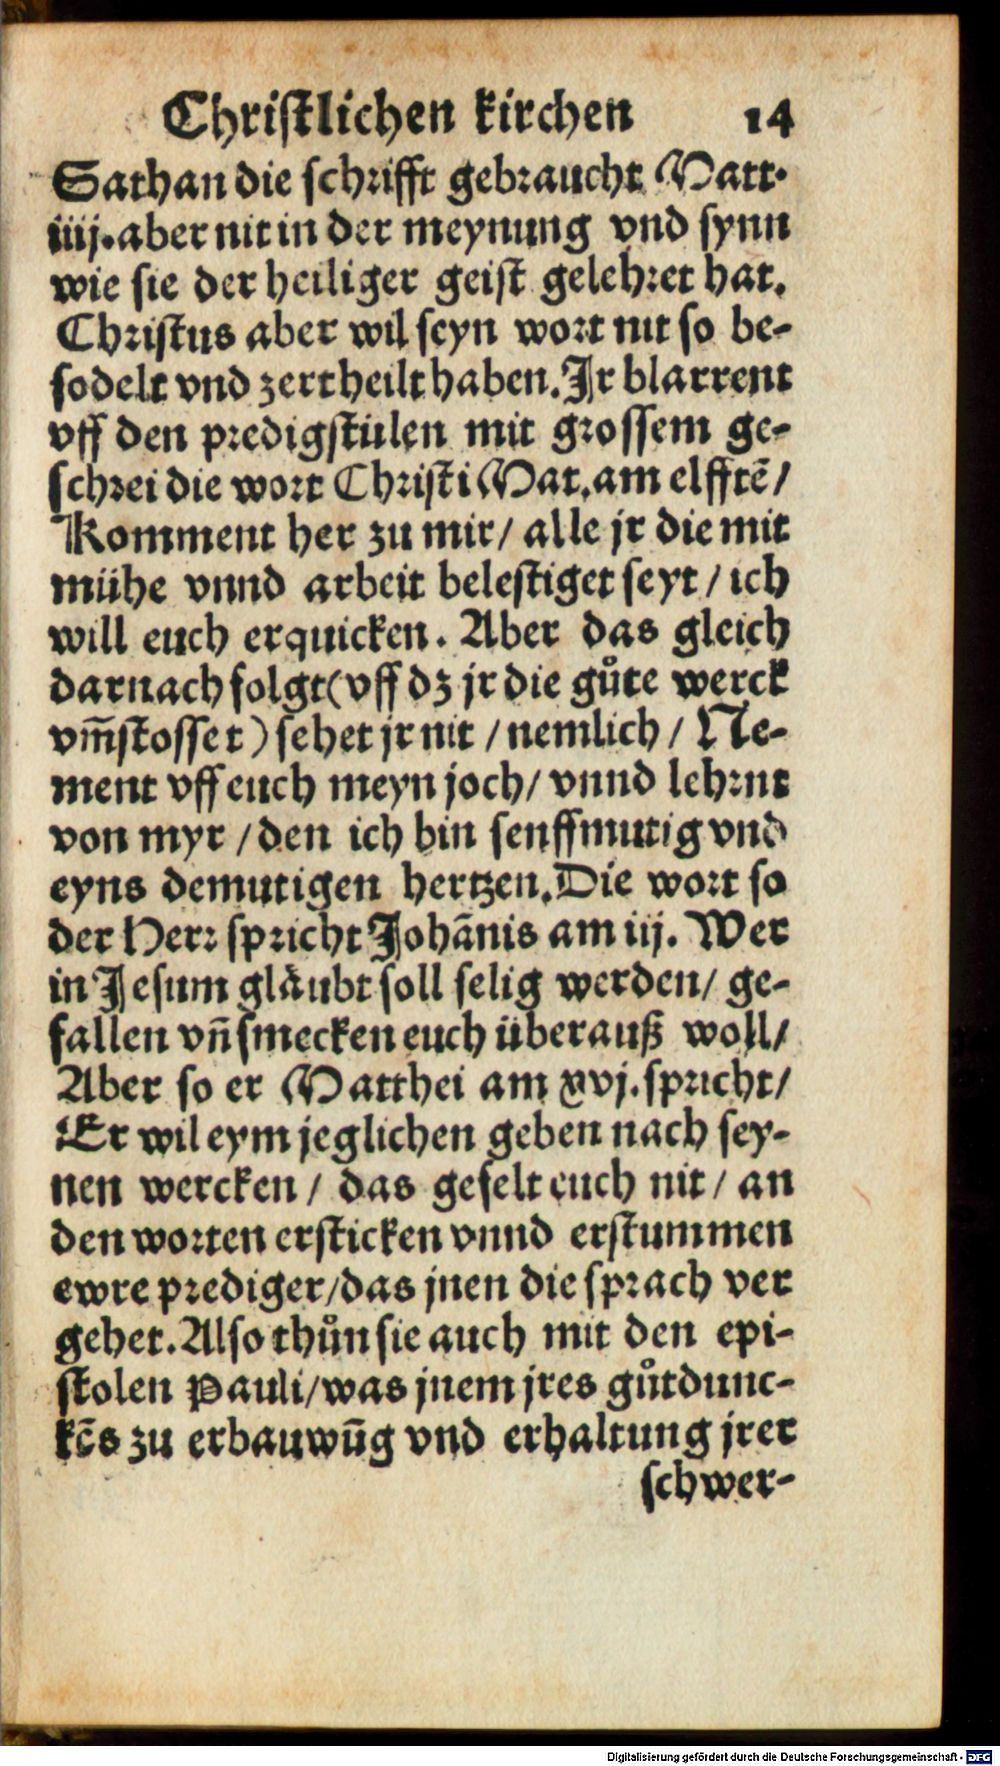 Christlichen kirchen 14
Sathan die schrifft gebraucht Matt.
iiij. aber nit in der meynung vnd synn
wie sie der heiliger geist gelehret hat.
Christus aber wil seyn wort nit so be-
sodelt vnd zertheilt haben. Jr blarrent
vff den predigstülen mit grossem ge-
schrei die wort Christi Mat. am elfftē/
Komment her zu mir/ alle jr die mit
mühe vnnd arbeit belestiget seyt/ ich
will euch erquicken. Aber das gleich
darnach folgt (vff dz jr die gůte werck
vm̄stosset) sehet jr nit/ nemlich/ Ne-
ment vff euch meyn joch/ vnnd lehrnt
von myr/ den ich bin senffmutig vnd
eyns demutigen hertzen. Die wort so
der Herr spricht Johānis am iij. Wer
in Jesum glåubt soll selig werden/ ge-
fallen vn̄ smecken euch überauß woll/
Aber so er Matthei am xvj. spricht/
Er wil eym jeglichen geben nach sey-
nen wercken/ das gefelt euch nit/ an
den worten ersticken vnnd erstummen
ewre prediger/ das jnen die sprach ver
gehet. Also thůn sie auch mit den epi-
stolen Pauli/ was jnem jres gůtdunc-
kēs zu erbauwūg vnd erhaltung jrer
schwer-
Digitalisierung gefördert durch die Deutsche Forschungsgemeinschaft - DFG